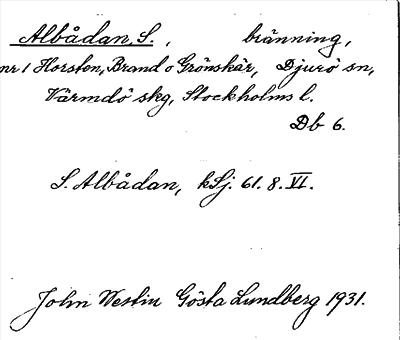 Albådan, S. , bränning,
nr 1 Horsten, Brand o Grönskär, Djurö sn,
Värmdö skg, Stockholms l.
Db 6.
S. Albådan, kSj. 61. 8. VI.
John Westin Gösta Lundberg 1931.